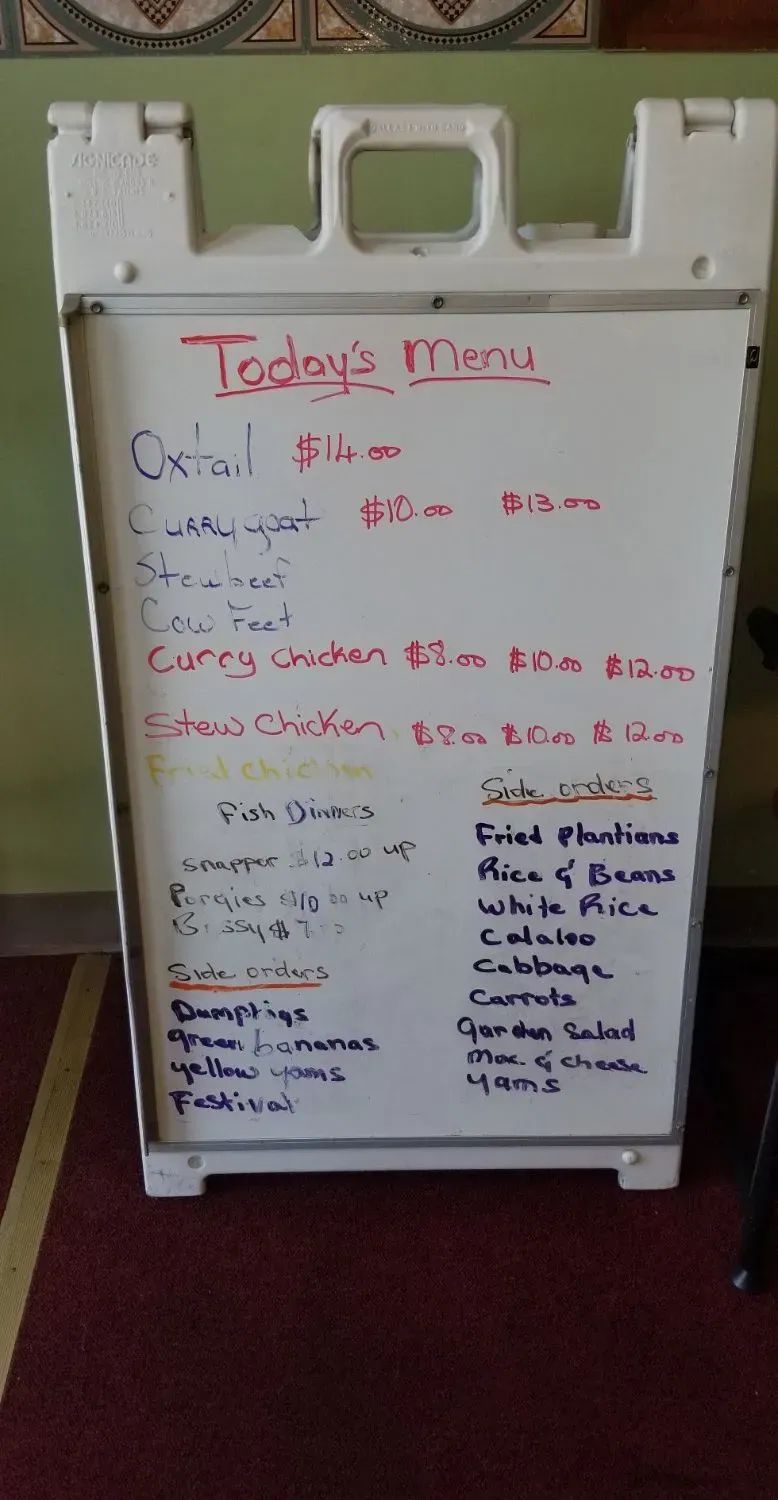 SIGNICADE
Today's Menu
Oxtail $14.00
Curry goat $10.00 $13.00
Stew beef
Cow Feet
Curry Chicken $8.00 $10.00 $12.00
Stew Chicken $8.00 $10.00 $12.00
Fried Chicken
Fish Dinners
Snapper $12.00 up
Porgies $10.00 up
Side orders
Dumptigs
green bananas
yellow yams
Festival
Side orders
Fried Plantians
Rice & Beans
White Rice
Calaloo
Cabbage
Carrots
garden Salad
Mac. & cheese
yams